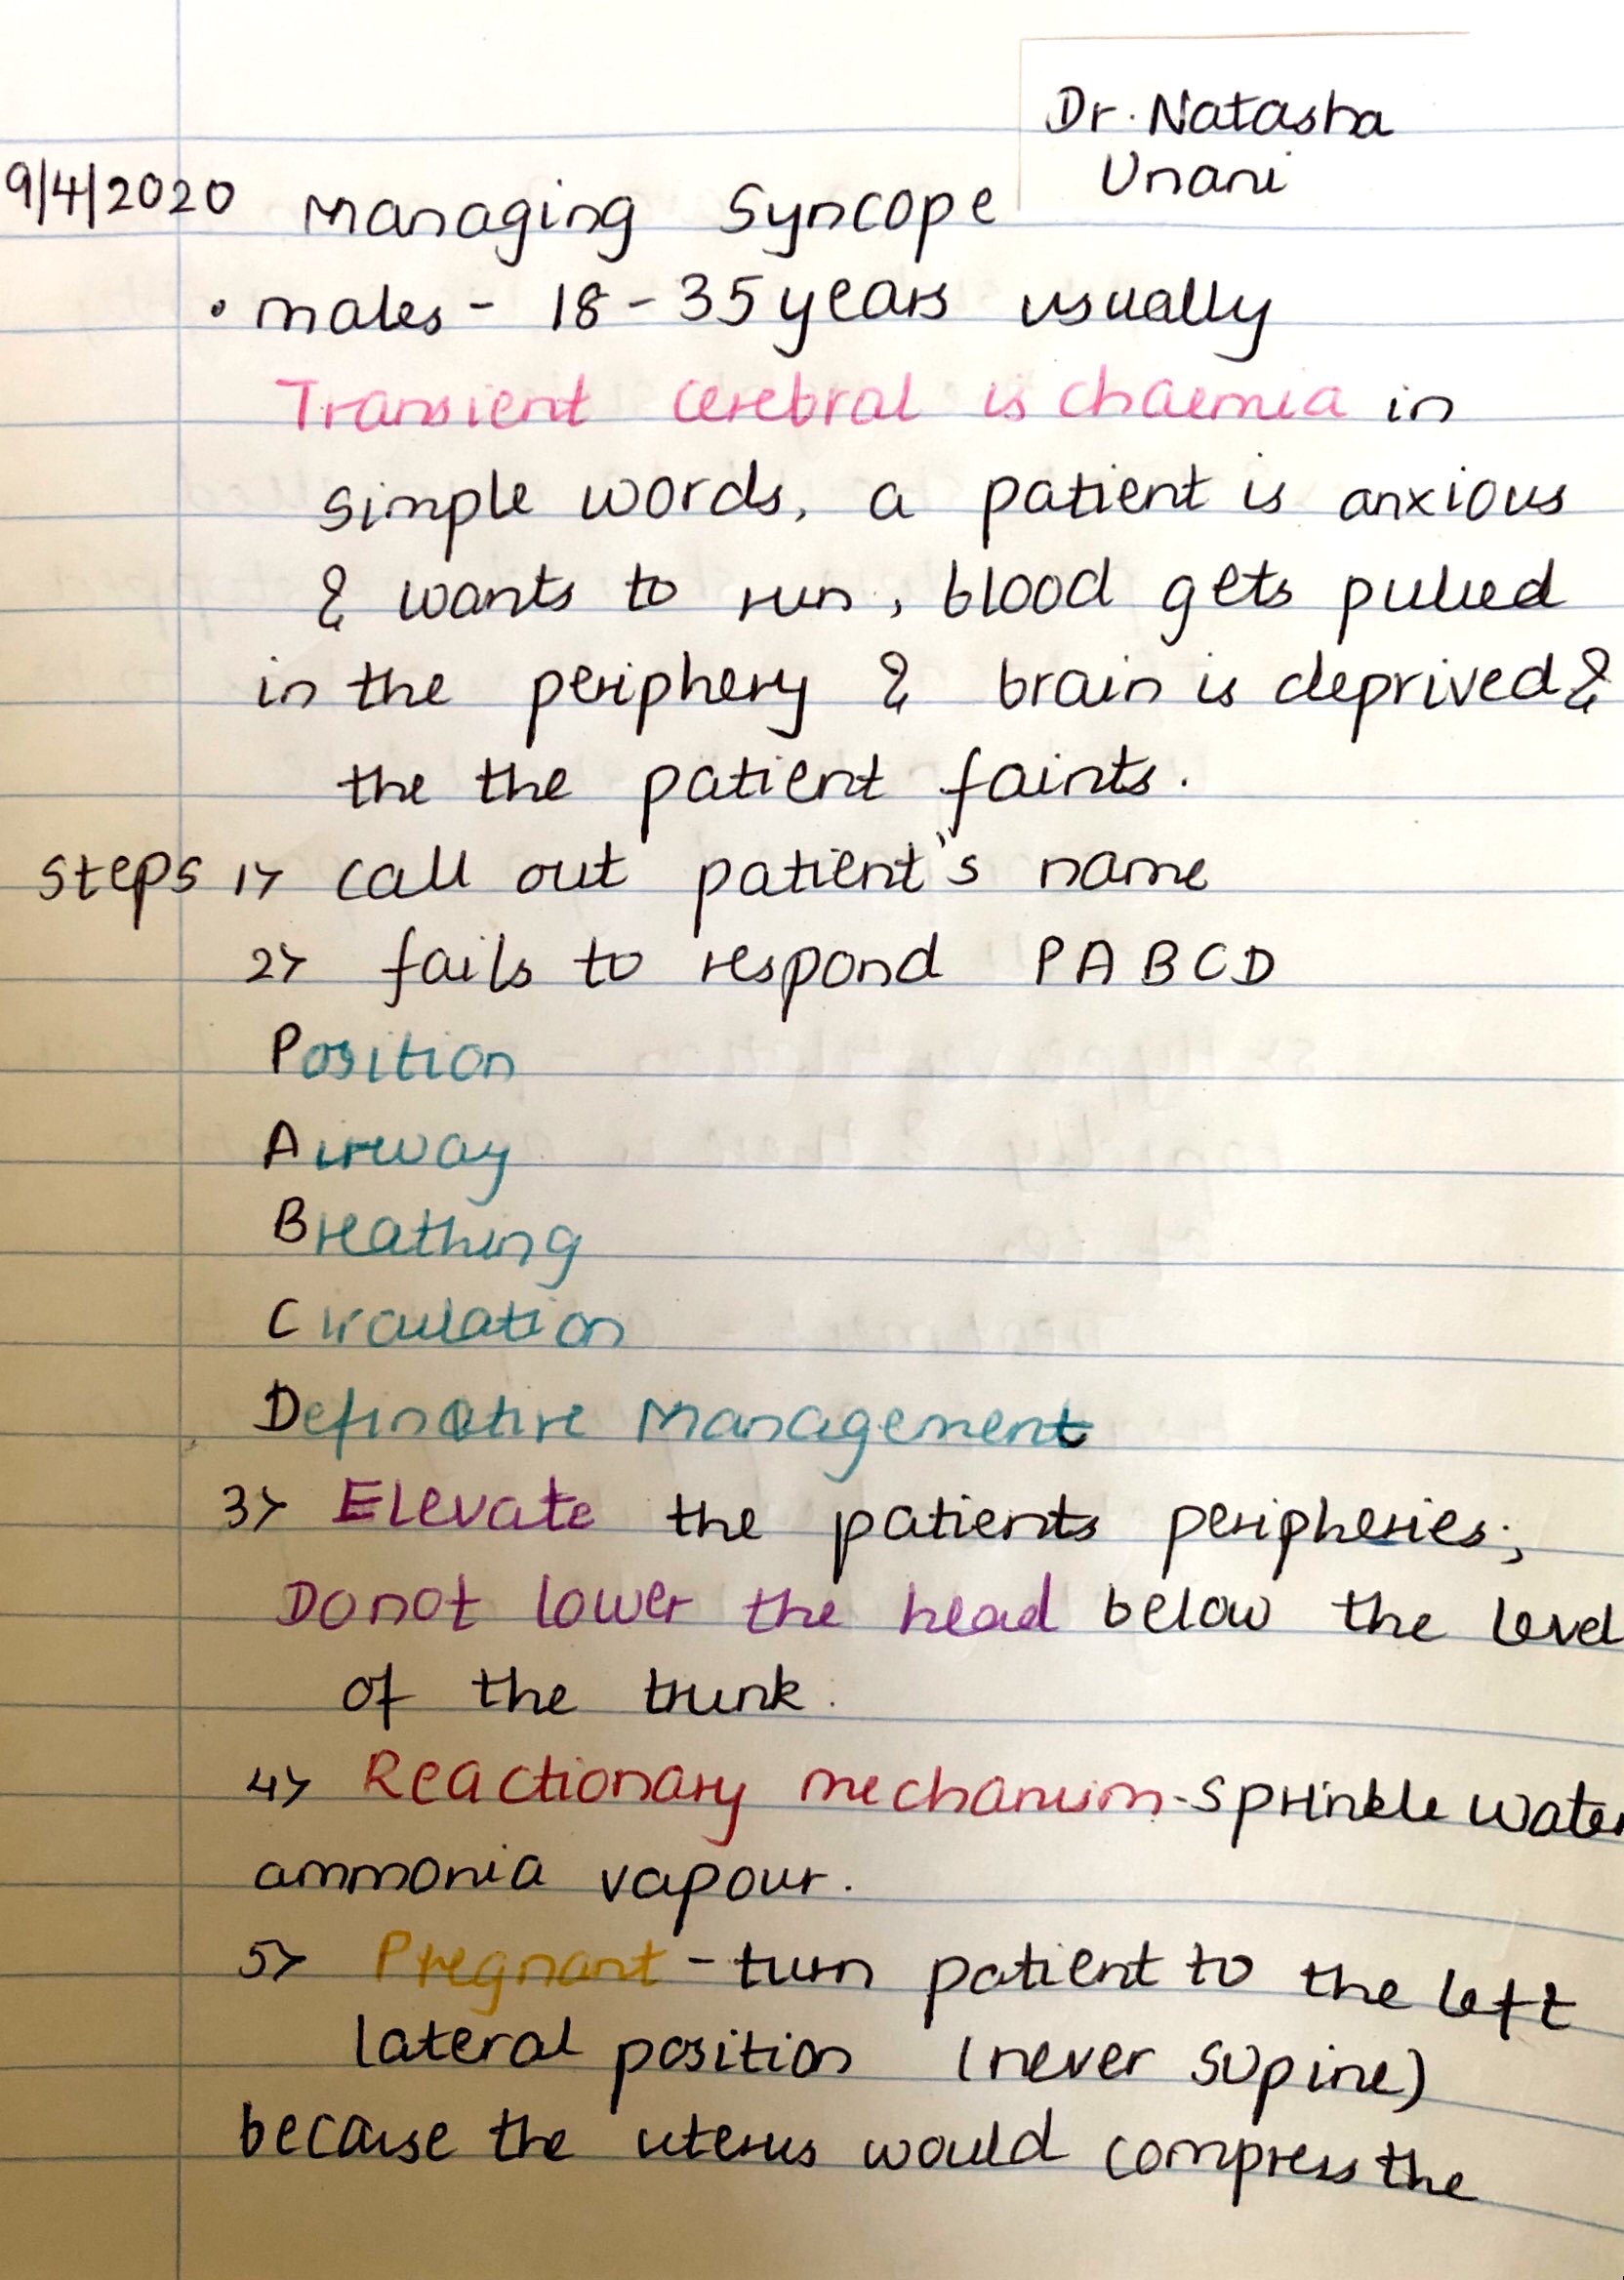 Dr. Natasha
Unani
9/4/2020 Managing Syncope
• males - 18 - 35 years usually
Transient cerebral ischaemia in
simple words, a patient is anxious
& wants to run, blood gets pulled
in the periphery & brain is deprived &
the the patient faints.
Steps 1> call out patient's name
2> fails to respond PABCD
Position
Airway
Breathing
Circulation
Definative Management
3> Elevate the patients peripheries;
Do not lower the head below the level
of the trunk.
4> Reactionary mechanism - Sprinkle water
ammonia vapour.
5> Pregnant - turn patient to the left
lateral position (never supine)
because the uterus would compress the